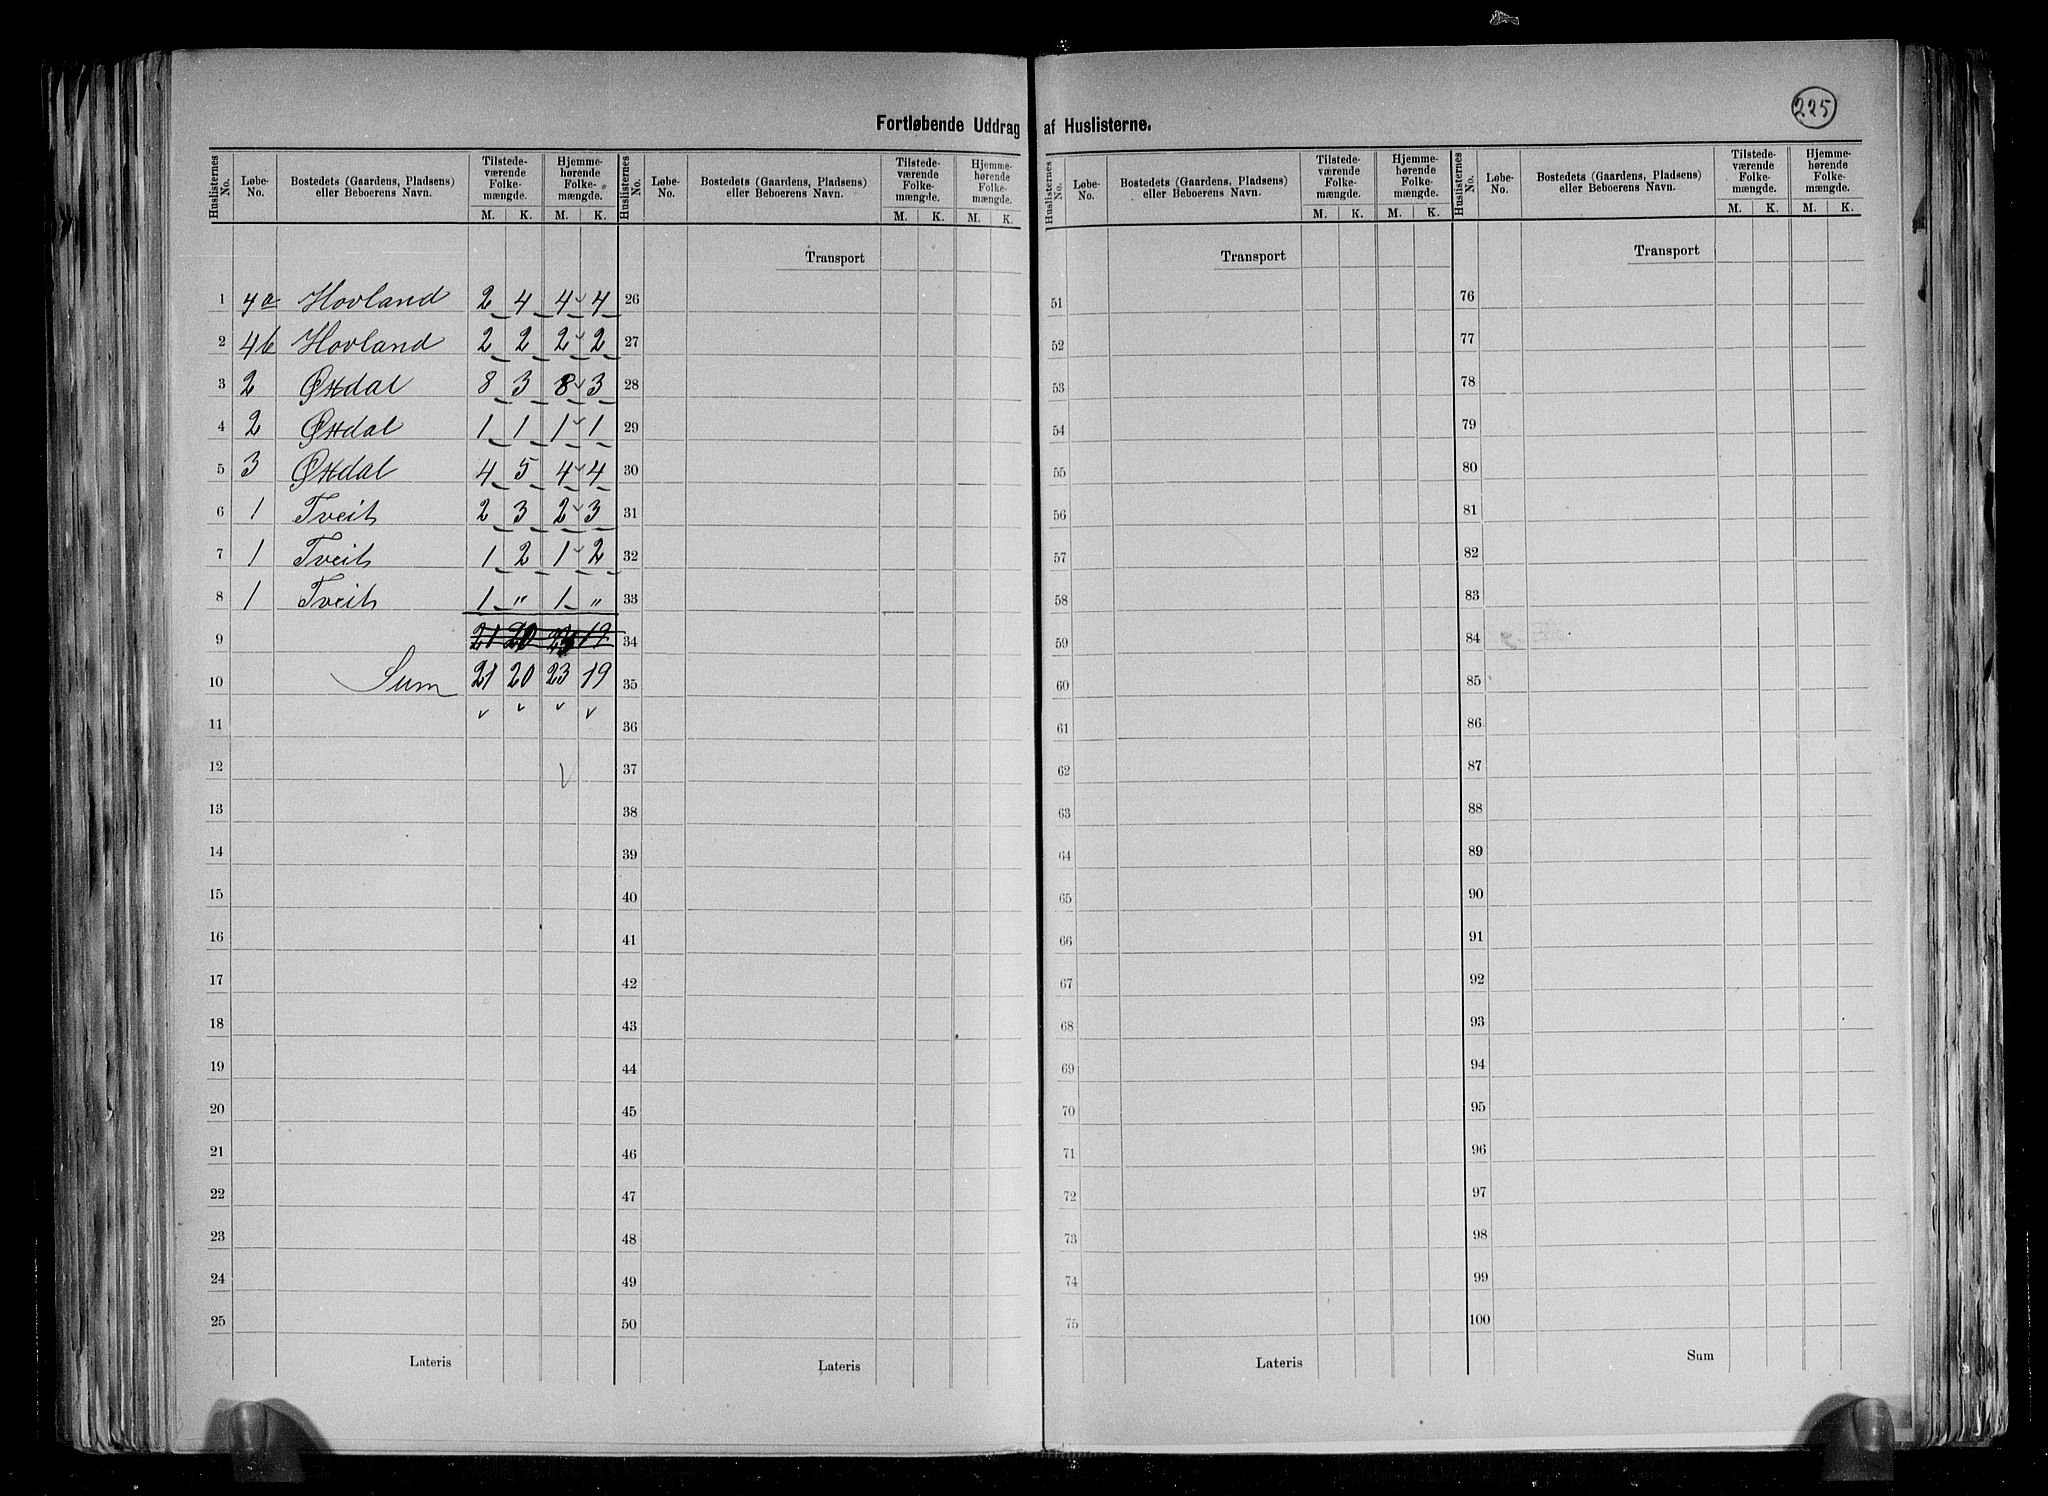 225
Fortløbende Uddrag af Huslisterne.
Huslisternes No. | Løbe-No. | Bostedets (Gaardens, Pladsens) eller Beboerens Navn. | Tilstede-værende Folke-mængde. M. K. | Hjemme-hørende Folke-mængde. M. K.
Huslisternes No. | Løbe-No. | Bostedets (Gaardens, Pladsens) eller Beboerens Navn. | Tilstede-værende Folke-mængde. M. K. | Hjemme-hørende Folke-mængde. M. K.
Huslisternes No. | Løbe-No. | Bostedets (Gaardens, Pladsens) eller Beboerens Navn. | Tilstede-værende Folke-mængde. M. K. | Hjemme-hørende Folke-mængde. M. K.
Huslisternes No. | Løbe-No. | Bostedets (Gaardens, Pladsens) eller Beboerens Navn. | Tilstede-værende Folke-mængde. M. K. | Hjemme-hørende Folke-mængde. M. K.
Transport Transport Transport
1 4a Hovland 2 4 4 4 26 51 76
2 4b Hovland 2 2 2 2 27 52 77
3 2 Østdal 8 3 8 3 28 53 78
4 2 Østdal 1 1 1 1 29 54 79
5 3 Østdal 4 5 4 4 30 55 80
6 1 Tveit 2 3 2 3 31 56 81
7 1 Tveit 1 2 1 2 32 57 82
8 1 Tveit 1 " 1 " 33 58 83
9 21 20 23 19 34 59 84
10 Sum 21 20 23 19 35 60 85
11 36 61 86
12 37 62 87
13 38 63 88
14 39 64 89
15 40 65 90
16 41 66 91
17 42 67 92
18 43 68 93
19 44 69 94
20 45 70 95
21 46 71 96
22 47 72 97
23 48 73 98
24 49 74 99
25 50 75 100
Lateris Lateris Lateris Sum